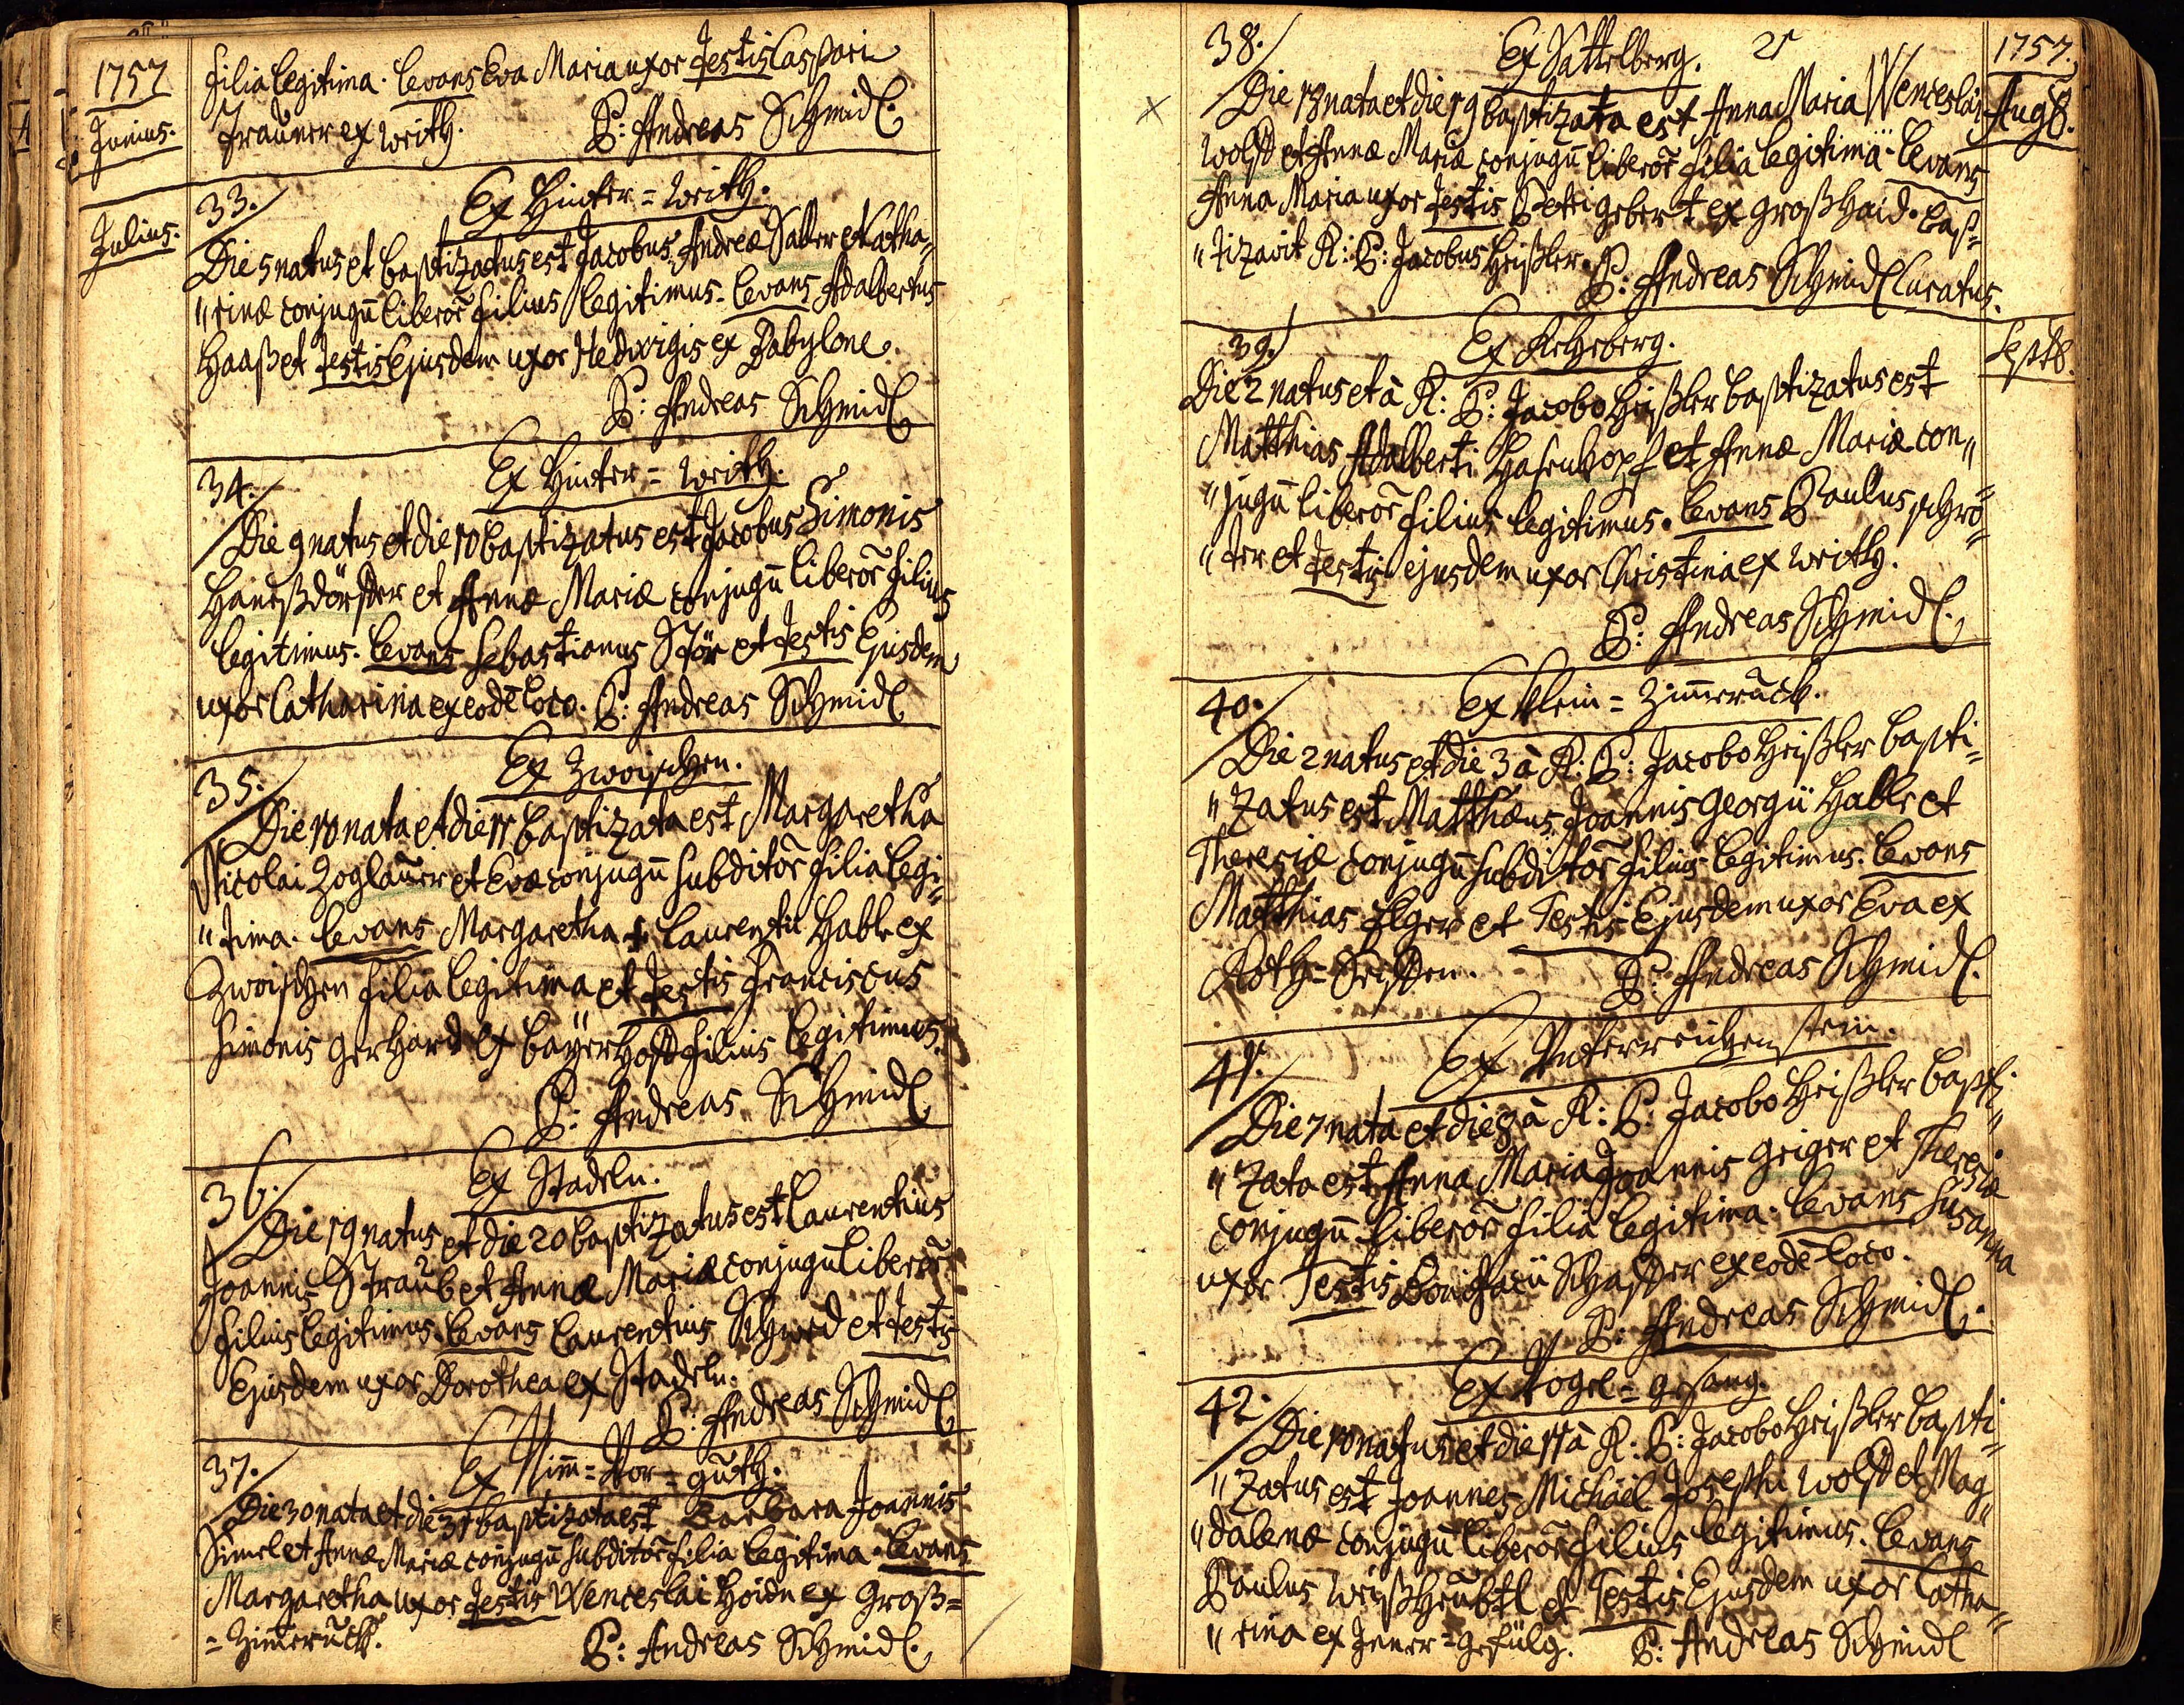 1757
Junius.
filia legitima. Levans Eva Maria uxor Testis Caspari
Trauner ex Weith.
P: Andreas Schmidl.
Julius.
33.
Ex Hinter = Weith.
Die 5 natus et baptizatus est Jacobus, Andreæ Saller et Catha„
„rinæ conjugũ liberor̃ filius legitimus. Levans Adalbertus
Haas et Testis Ejusdem uxor Hedwigis ex Babylone.
P: Andreas Schmidl
34.
Ex Hinter = Weith.
Die 9 natus et die 10 baptizatus est Jacobus Simonis
et Annæ Mariæ conjugũ liberor̃ filius
legitimus. Levans Sebastianus Stör et Testis Ejusdem
uxor Catharina ex eodē loco. P: Andreas Schmidl
35.
Ex Zwoischen.
Die 10 nata et die 11 baptizata est Margaretha
Nicolai Zoglauer et Evæ conjugũ subditor̃ filia legi„
„tima. Levans Margaretha Laurentii Hable ex
Zwoischen filia legitima et Testis Franciscus
Simonis Gerhard ex Bayerhoff filius legitimus.
P: Andreas Schmidl
36.
Ex Stadeln.
Die 19 natus et die 20 baptizatus est Laurentius
Joannis Straub et Annæ Mariæ conjugũ liberor̃
filius legitimus. Levans Laurentius Schmed et Testis
Ejusdem uxor Dorothea ex Stadeln.
P: Andreas Schmidl
37.
Ex Nim̃ = Vor = guth.
Die 30 nata et die 31 baptizata est Barbara Joannis
Simel et Annæ Mariæ conjugũ subditor̃ filia legitima. Levans
Margaretha uxor Testis Wenceslai Hoidn ex Groß=
= Zim̃eruck.
P: Andreas Schmidl.
21
1757.
Aug8.
38.
Ex Sattelberg.
Die 18 nata et die 19 baptizata est Anna Maria Wenceslai
Wolff et Annæ Mariæ conjugũ liberor̃ filia legitima. Levans
Anna Maria uxor Testis Petri Gebert ex Großhaid. bap=
„tizavit R: P: Jacobus Heißler.
P: Andreas Schmidl Curatus.
Sept8.
39.
Ex Rehberg.
Die 2 natus et à R: P: Jacobo Heißler baptizatus est
Matthias Adalberti Hasenkopf et Annæ Mariæ con„
„jugũ liberor̃ filius legitimus. Levans Paulus Schrö=
„der et Testis ejusdem uxor Christina ex Weith.
P: Andreas Schmidl.
40.
Ex Klein = Zim̃eruck.
Die 2 natus et die 3 à R: P: Jacobo Heißler bapti„
„zatus est Matthæus, Joannis Georgii Hable et
Theresiæ conjugũ subditor̃ filius legitimus. Levans
Matthias Elger et Testis Ejusdem uxor Eva ex
Roth = Seiffen.
P: Andreas Schmidl.
41.
Ex Unterreichenstein.
Die 7 nata et die 8 à R: P: Jacobo Heißler bapti„
„zata est Anna Maria Joannis Geiger et Theresiæ
conjugũ liberor̃ filia legitima. Levans Susanna
uxor Testis Bonifacii Schaffer ex eodē loco.
P: Andreas Schmidl.
42.
Ex Vogel = gesang.
Die 10 natus et die 11 à R: P: Jacobo Heißler bapti„
„zatus est Joannes Michaël Josephi Wolff et Mag„
„dalenæ conjugũ liberor̃ filius legitimus. Levans
Paulus Weißhäubtl et Testis Ejusdem uxor Catha„
„rina ex Inner = gefülg. P: Andreas Schmidl